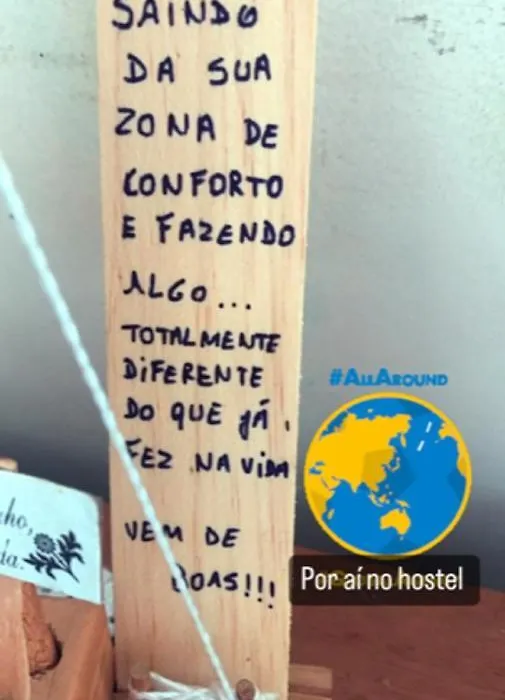 SAINDO
DA SUA
ZONA DE
CONFORTO
E FAZENDO
ALGO...
TOTALMENTE
DIFERENTE
DO QUE JÁ
FEZ NA VIDA
VEM DE
BOAS!!!
nho,
da.
#ALLAROUND
Por aí no hostel